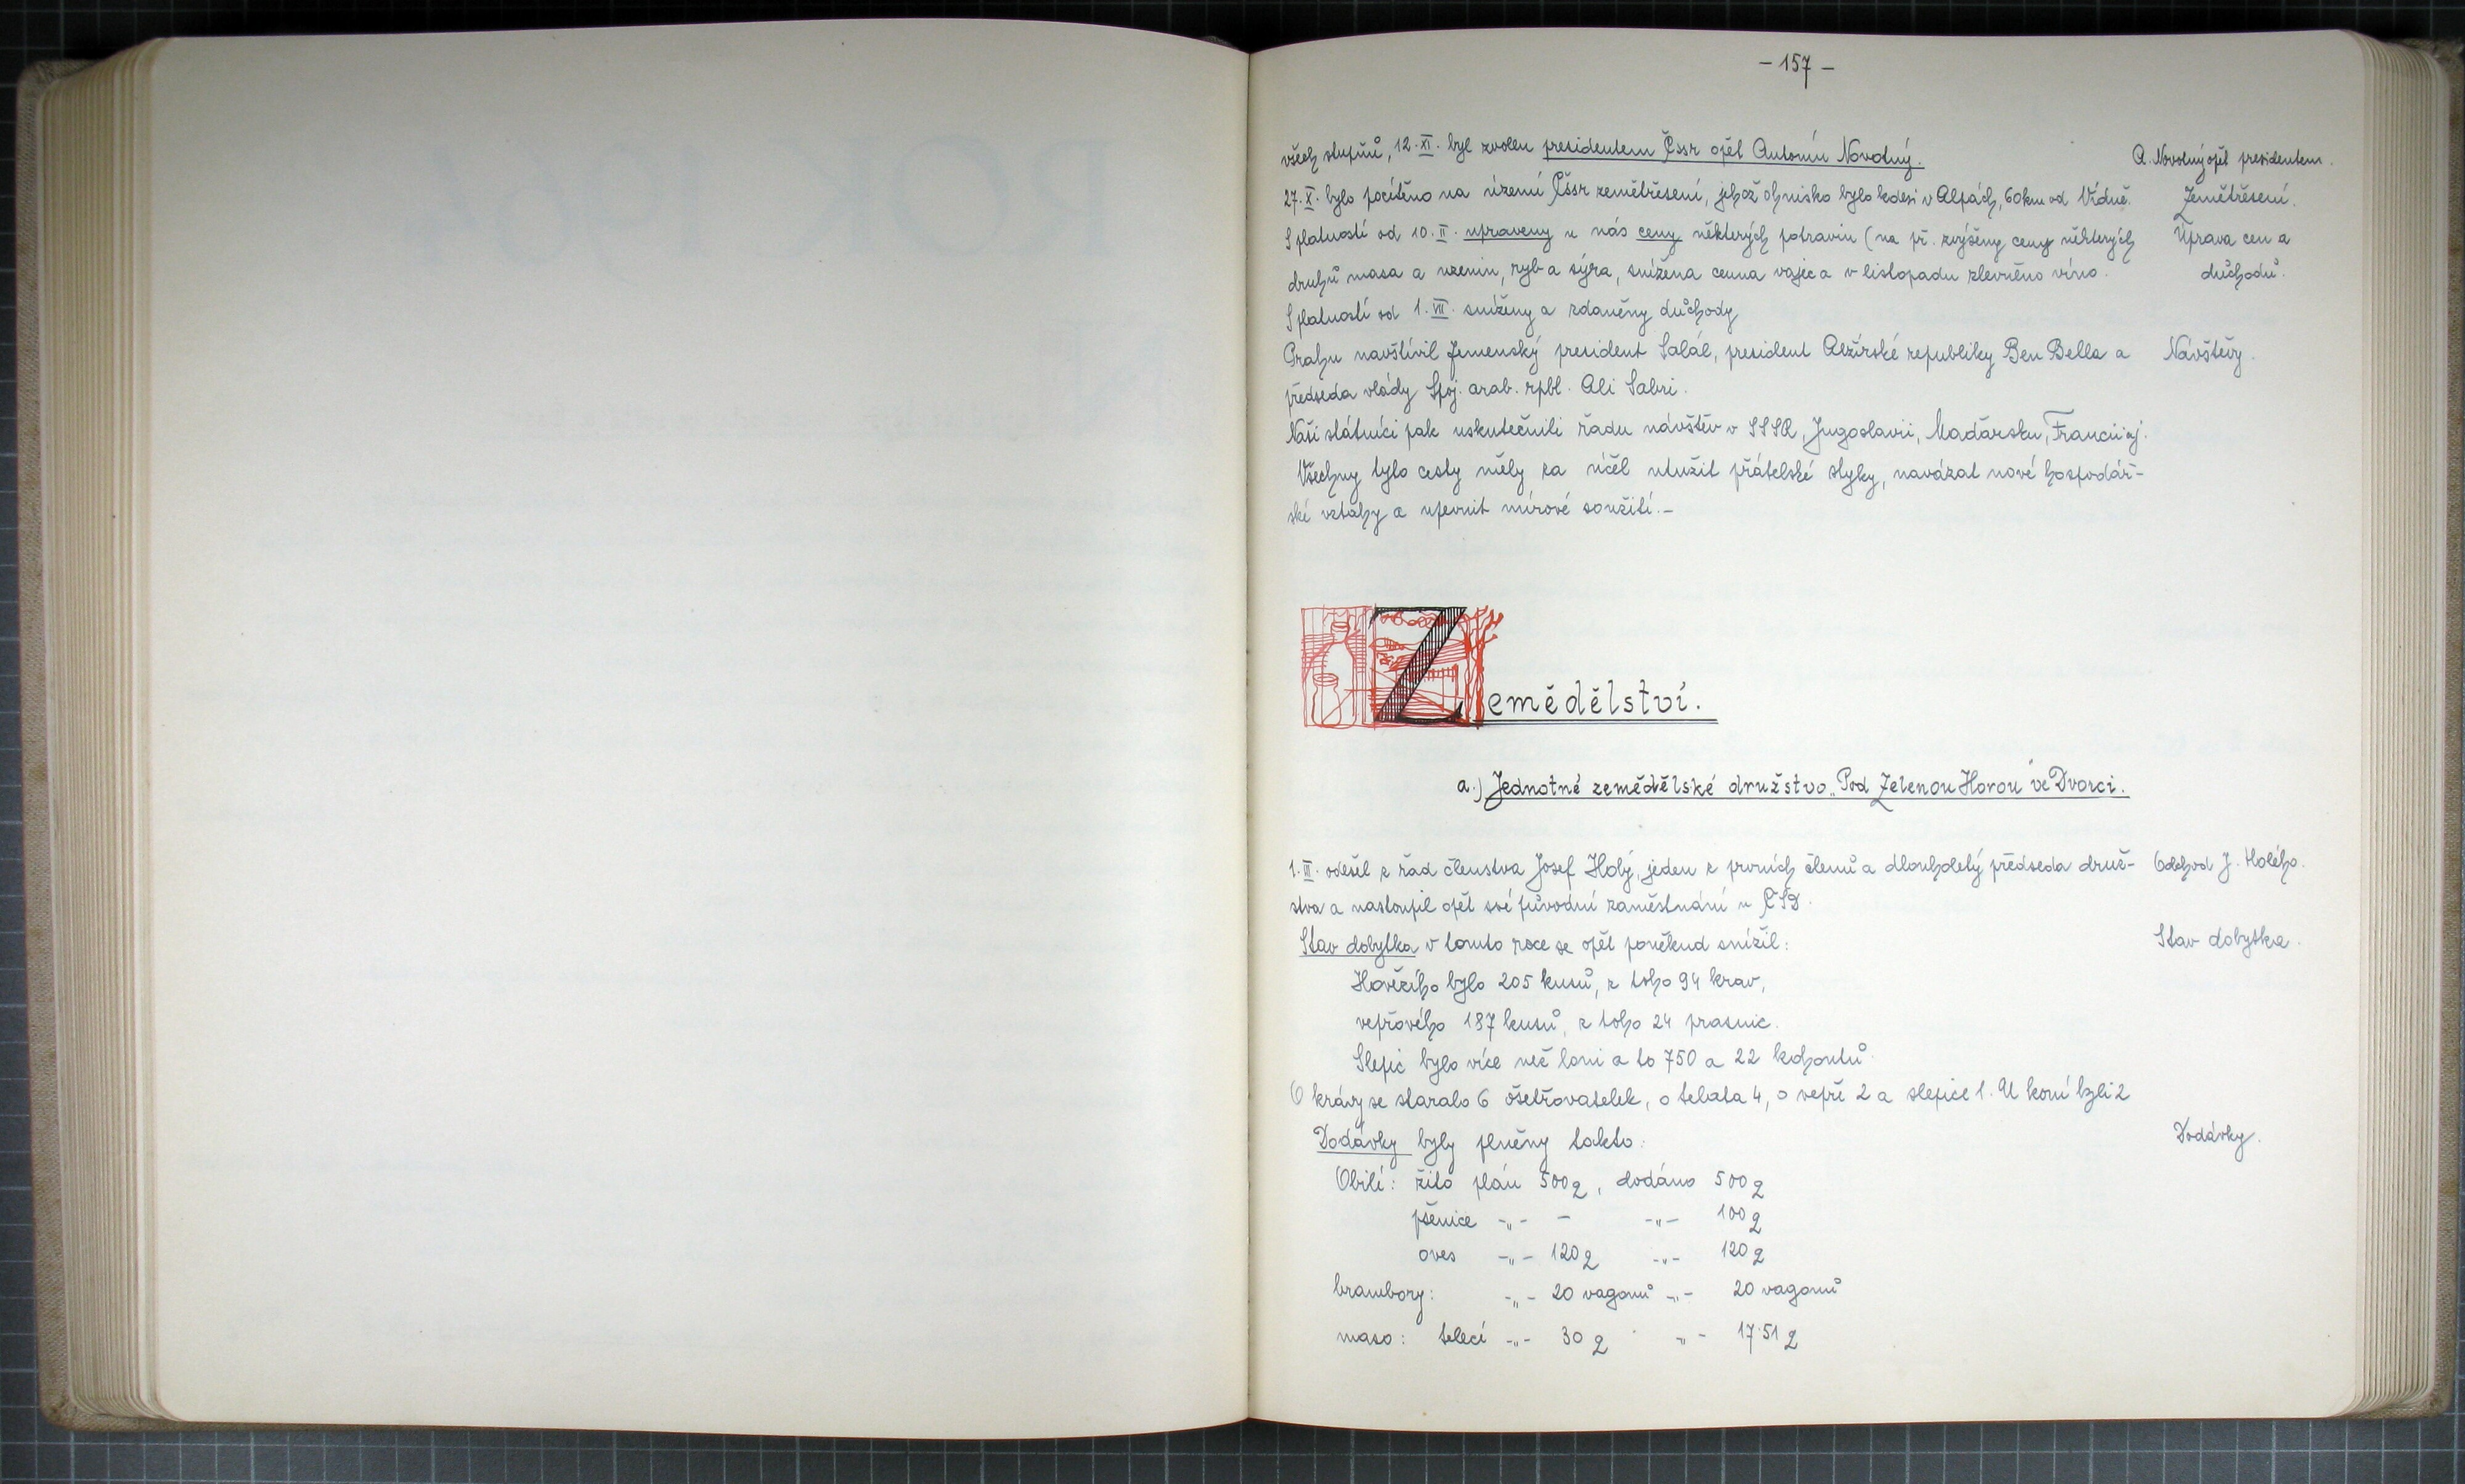 - 157 -
všech stupňů, 12. XI. byl zvolen presidentem Čssr opět Antonín Novotný.
A. Novotný opět presidentem.
27. X. bylo pocítěno na území Čssr zemětřesení, jehož ohnisko bylo kdesi v Alpách, 60 km od Vídně.
Zemětřesení.
S platností od 10. II. upraveny u nás ceny některých potravin (na př. zvýšeny ceny některých
Úprava cen a
druhů masa a uzenin, ryb a sýra, snížena cena vajec a v listopadu zlevněno víno.
důchodů.
S platností od 1. VII. sníženy a zdaněny důchody
Prahu navštívil Jemenský president Salál, president Alžírské republiky Ben Bella a
Návštěvy.
předseda vlády Spoj. arab. rpbl. Ali Sabri.
Naši státníci pak uskutečnili řadu návštěv v SSSR, Jugoslavii, Maďarsku, Francii aj.
Všechny tyto cesty měly za účel utužit přátelské styky, navázat nové hospodář-
ské vztahy a upevnit mírové soužití.-
Zemědělství.
a.) Jednotné zemědělské družstvo „Pod Zelenou Horou" ve Dvorci.
1. III. odešel z řad členstva Josef Holý, jeden z prvních členů a dlouholetý předseda druž-
Odchod J. Holého.
stva a nastoupil opět své původní zaměstnání u ČSD.
Stav dobytka v tomto roce se opět poněkud snížil:
Stav dobytka.
Hovězího bylo 205 kusů, z toho 94 krav,
vepřového 187 kusů, z toho 24 prasnic.
Slepic bylo více než loni a to 750 a 22 kohoutů.
O krávy se staralo 6 ošetřovatelek, o telata 4, o vepře 2 a slepice 1. U koní byli 2
Dodávky byly plněny takto:
Dodávky.
Obilí: žito plán 500 q, dodáno 500 q
pšenice -„- - -„- 100 q
oves -„- 120 q -„- 120 q
brambory: -„- 20 vagonů -„- 20 vagonů
maso: telecí -„- 30 q -„- 17·51 q